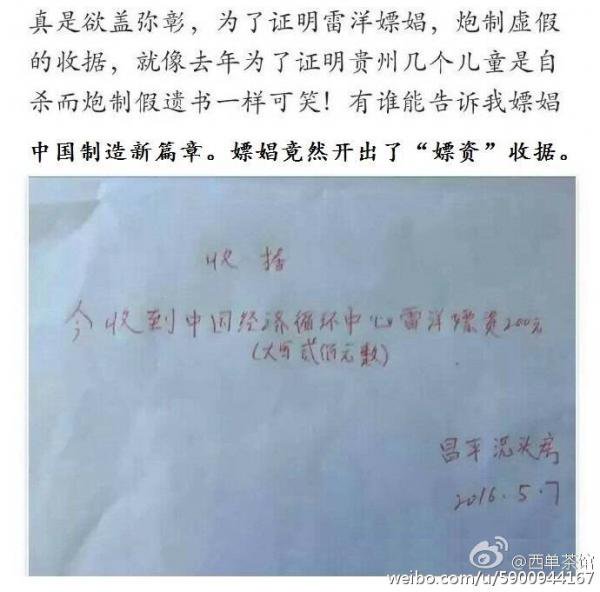 真是欲盖弥彰，为了证明雷洋嫖娼，炮制虚假
的收据，就像去年为了证明贵州几个儿童是自
杀而炮制假遗书一样可笑！有谁能告诉我嫖娼
中国制造新篇章。嫖娼竟然开出了“嫖资”收据。
收据
今收到中国经济循环中心雷洋嫖资200元
(大写贰佰元数)
昌平 头房
2016.5.7
@西单茶馆
weibo.com/u/5900944167